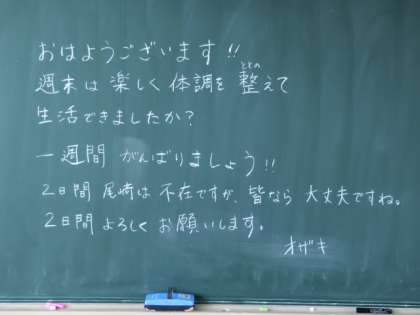 おはようございます!!
週末は楽しく体調を整えて
ととの
生活できましたか?
一週間 がんばりましょう!!
2日間 尾崎は 不在ですが、皆なら 大丈夫ですね。
2日間 よろしく お願いします。
オザキ